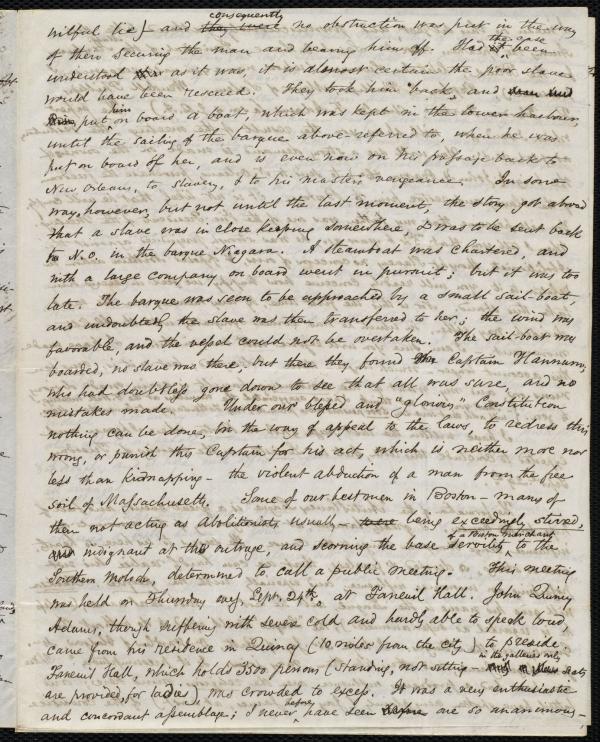 wilful lie) - and consequently they were no obstruction was put in the way
of their securing the man and bearing him off. Had it the case been
understood as it was, it is almost certain the poor slave
would have been rescued. They took him back, and
put him on board a boat, which was kept in the lower harbour,
until the sailing of the barque above-referred to, when he was
put on board of her, and is even now on his passage back to
New Orleans, to slavery, & to his master's vengeance. In some
way, however, but not until the last moment, the story got abroad
that a slave was in close keeping somewhere, & was to be sent back
to N.O. in the barque Niagara. A steamboat was chartered, and
with a large company on board went in pursuit; but it was too
late. The barque was seen to be approached by a small sail-boat,
and undoubtedly the slave was then transferred to her; the wind was
favorable, and the vessel could not be overtaken. The sail-boat was
boarded, no slave was there, but there they found Captain Hannum,
who had doubtless gone down to see that all was sure, and no
mistakes made. Under our blessed and "glorious" Constitution
nothing can be done, in the way of appeal to the laws, to redress this
wrong, or punish this Captain for his act, which is neither more nor
less than kidnapping - the violent abduction of a man from the free
soil of Massachusetts. Some of our best men in Boston - many of
them not acting as Abolitionists usually - being exceedingly stirred,
indignant at this outrage, and scorning the base servility of a Boston merchant to the
Southern Moloch, determined to call a public meeting. This meeting
was held on Thursday evg, Sept. 24th, at Faneuil Hall. John Quincy
Adams, though suffering with severe cold and hardly able to speak loud,
came from his residence in Quincy (10 miles from the city) to preside.
Faneuil Hall, which holds 3500 persons (standing, not sitting - in the galleries only seats
are provided, for ladies), was crowded to excess. It was a very enthusiastic
and concordant assemblage; I never before have seen before one so unanimous,-